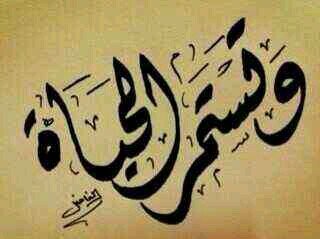 وتستمر الحياة